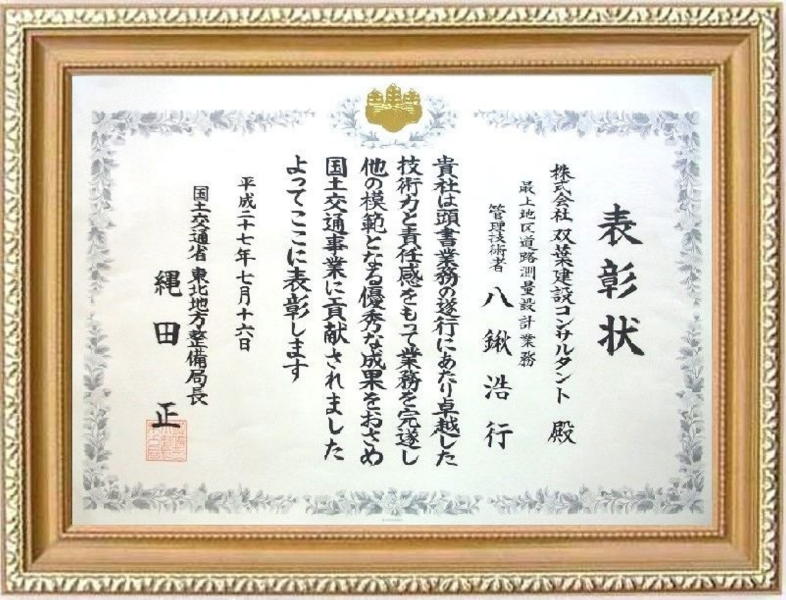 表彰状
株式会社 双葉建設コンサルタント 殿
最上地区道路測量設計業務
管理技術者 八鍬浩行
貴社は頭書業務の遂行にあたり卓越した
技術力と責任感をもって業務を完遂し
他の模範となる優秀な成果をおさめ
国土交通事業に貢献されました
よってここに表彰します
平成二十七年七月十六日
国土交通省 東北地方整備局長
縄田正